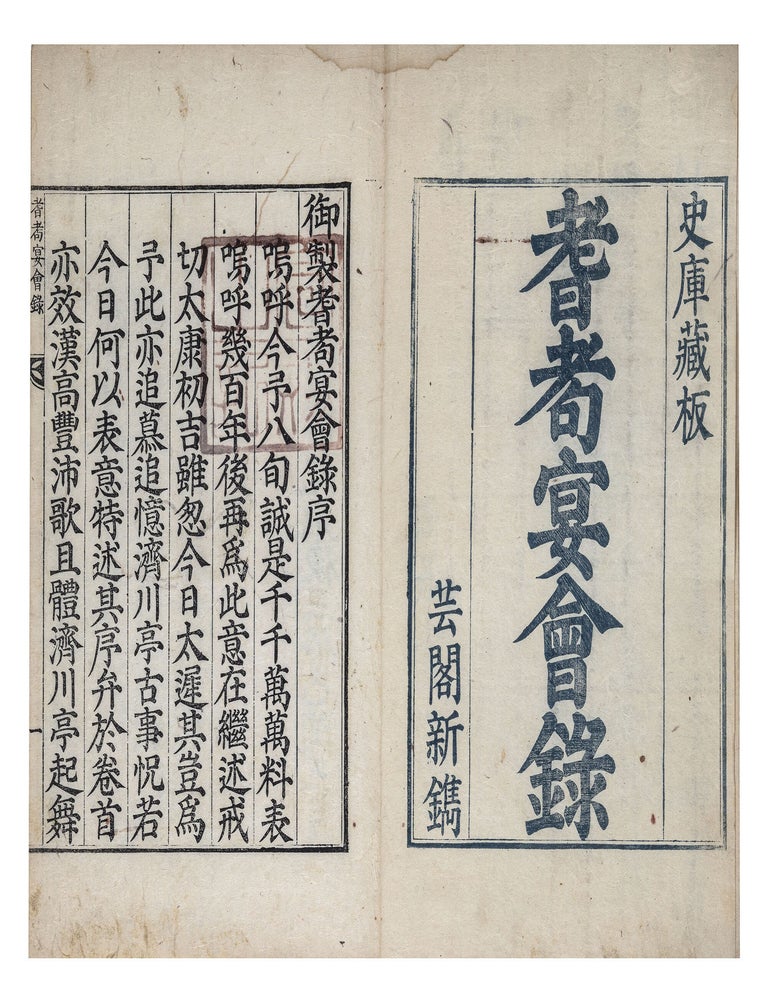 史庫藏板
耆耈宴會錄
芸閣新鐫
御製耆耈宴會錄序
嗚呼今予八旬誠是千千萬萬料表
嗚呼幾百年後再爲此意在繼述戒
切太康初吉雖怱今日太遲其豈爲
予此亦追慕追憶濟川亭古事怳若
今日何以表意特述其序弁於卷首
亦效漢高豐沛歌且體濟川亭起舞
耆耈宴會錄
一